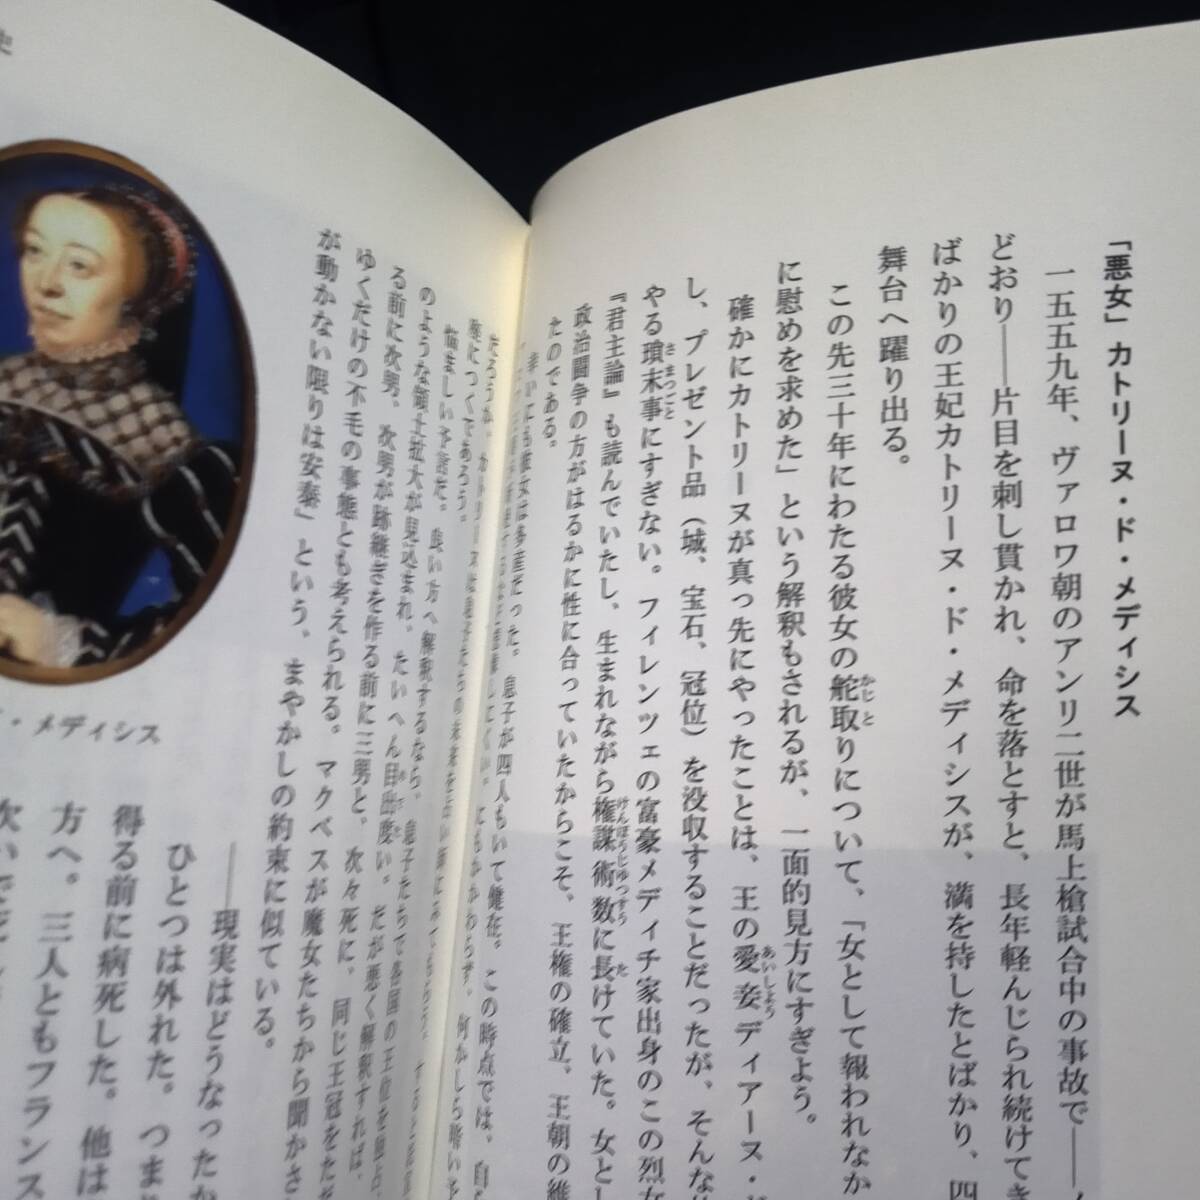 「悪女」カトリーヌ・ド・メディシス
一五五九年、ヴァロワ朝のアンリ二世が馬上槍試合中の事故で――
どおり――片目を刺し貫かれ、命を落とすと、長年軽んじられ続けてき
ばかりの王妃カトリーヌ・ド・メディシスが、満を持したとばかり、四
舞台へ躍り出る。
この先三十年にわたる彼女の舵取りについて、「女として報われなか
に慰めを求めた」という解釈もされるが、一面的見方にすぎよう。
確かにカトリーヌが真っ先にやったことは、王の愛妾ディアーヌ・ド
し、プレゼント品（城、宝石、冠位）を没収することだったが、そんな
やる瑣末事にすぎない。フィレンツェの富豪メディチ家出身のこの烈女
『君主論』も読んでいたし、生まれながら権謀術数に長けていた。女とし
政治闘争の方がはるかに性に合っていたからこそ、王権の確立、王朝の維
たのである。
幸いにも彼女は多産だった。息子が四人もいて健在。この時点では、自
だろうか。カトリーヌは息子たちの未来を
座につくであろう。
悩ましい予言だ。良い方へ解釈するなら、息子たちで各国の王位を
のような領土拡大が見込まれ、たいへん目出度い。だが悪く解釈すれば、
る前に次男、次男が跡継ぎを作る前に三男と、次々死に、同じ王冠をただ
ゆくだけの不毛の事態とも考えられる。マクベスが魔女たちから聞かさ
が動かない限りは安泰」という、まやかしの約束に似ている。
――現実はどうなったか
ひとつは外れた。つまり
得る前に病死した。他は
方へ。三人ともフランス
史
・メディシス